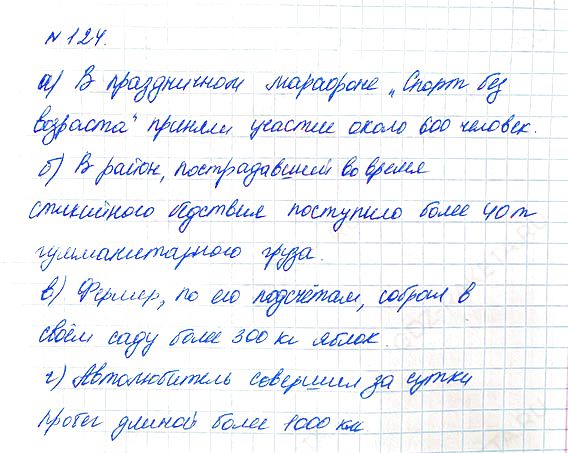 № 124.
а) В праздничном марафоне „Спорт без
возраста" приняли участие около 600 человек.
б) В район, пострадавший во время
стихийного бедствия поступило более 40 т
гумманитарного груза.
в) Фермер, по его подсчётам, собрал в
своём саду более 300 кг яблок.
г) Автолюбитель совершил за сутки
пробег длиной более 1000 км